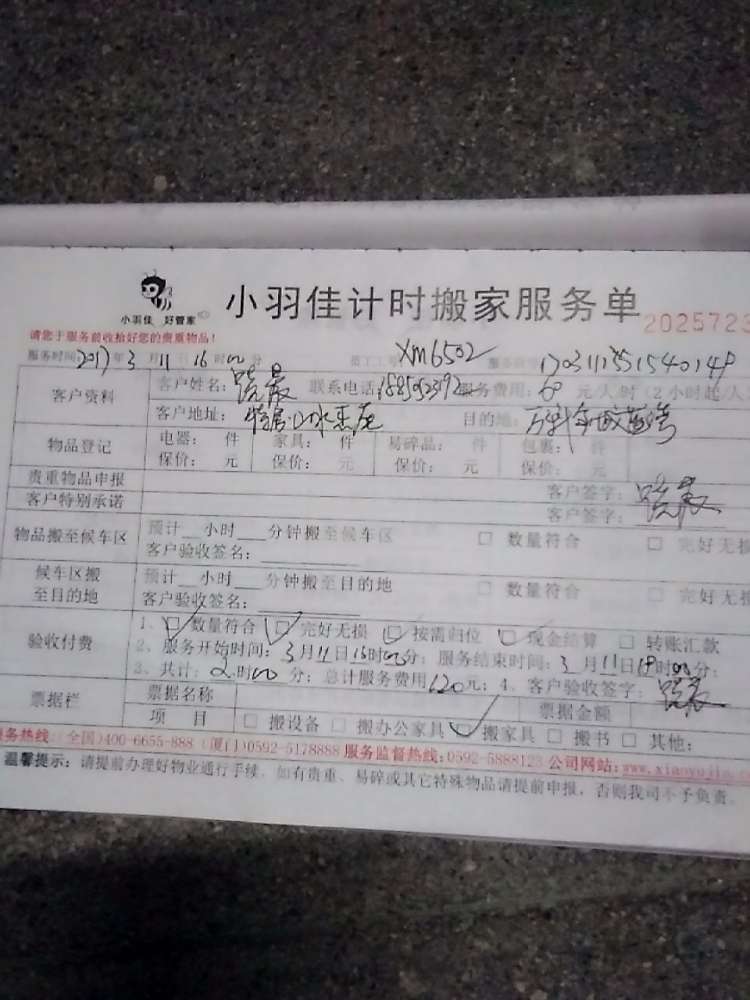 小羽佳 好管家
小羽佳计时搬家服务单
2025723
请您于服务前收拾好您的贵重物品!
服务时间2017年3月11日16时00分 员工工号 XM6502 服务单号
客户资料
客户姓名: 联系电话: 服务费用: 60 元/人/时(2小时起/人
客户地址: 目的地:
物品登记
电器: 件 家具: 件 易碎品: 件 包裹: 件
保价: 元 保价: 元 保价: 元 保价: 元
贵重物品申报 客户签字:
客户特别承诺 客户签字:
物品搬至候车区
预计__小时___分钟搬至候车区 □ 数量符合 □ 完好无损
客户验收签名:
候车区搬至目的地
预计__小时___分钟搬至目的地 □ 数量符合 □ 完好无损
客户验收签名:
验收付费
1、□ 数量符合 □ 完好无损 □ 按需归位 □ 现金结算 □ 转账汇款
2、服务开始时间: 3月11日16时00分; 服务结束时间: 3月11日18时00分;
3、共计: 2时00分; 总计服务费用120元; 4、客户验收签字:
票据栏
票据名称 票据金额
项 目 □ 搬设备 □ 搬办公家具 □ 搬家具 □ 搬书 □ 其他:
服务热线:(全国)400-6655-888 (厦门)0592-5178888 服务监督热线:0592-5888123 公司网站:
温馨提示: 请提前办理好物业通行手续。如有贵重、易碎或其它特殊物品请提前申报,否则我司不予负责。